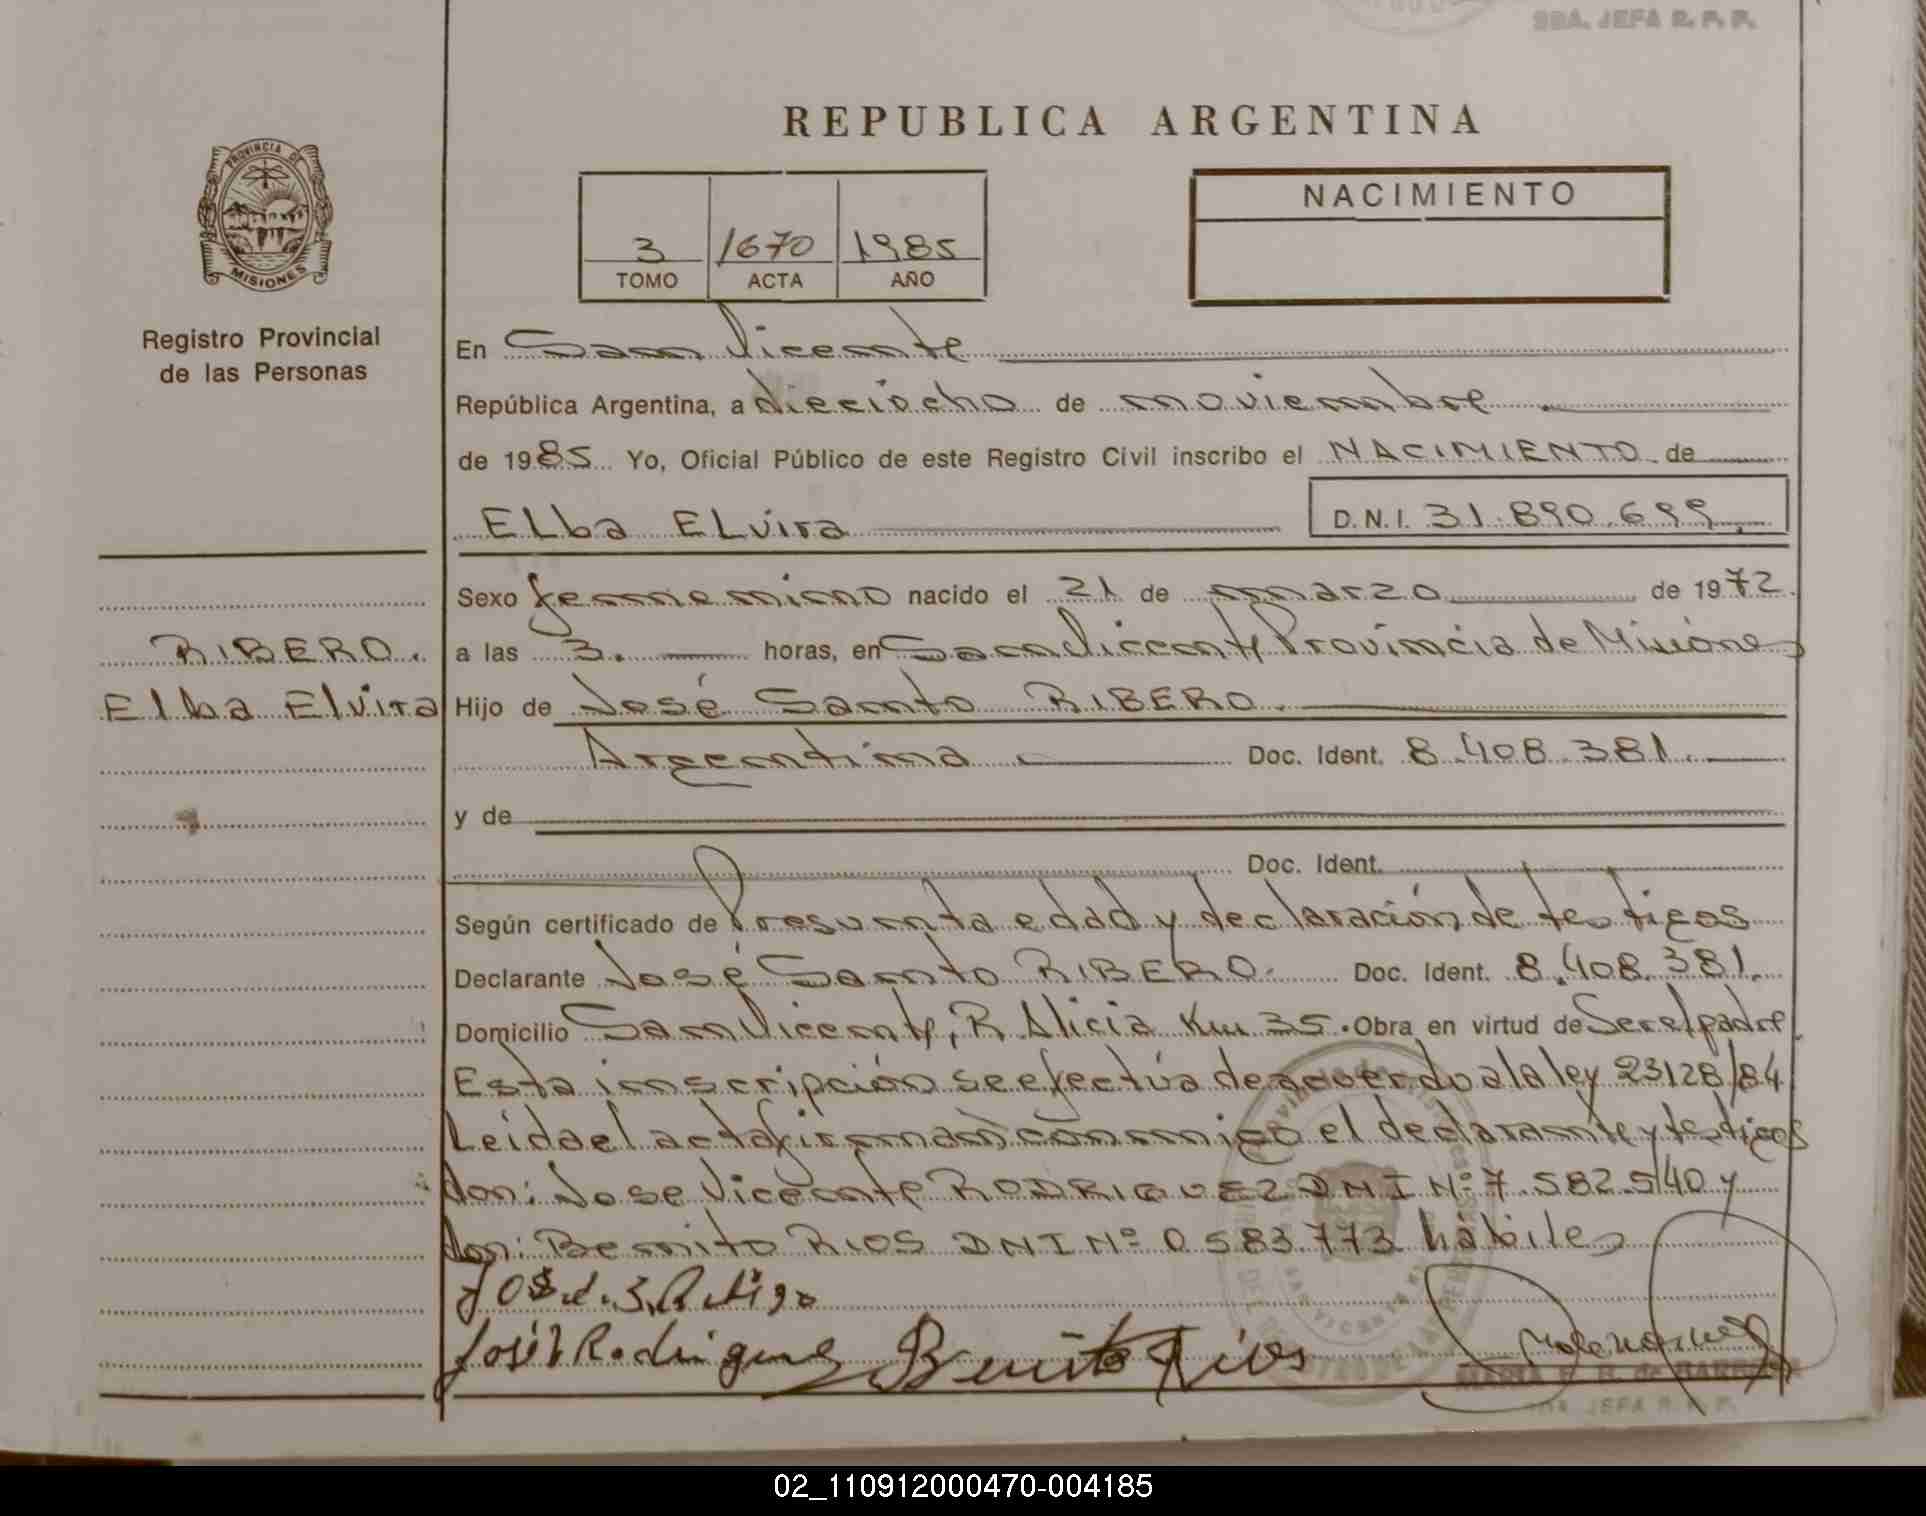 SBA. JEFA R. P. P.
REPUBLICA ARGENTINA
PROVINCIA DE
MISIONES
Registro Provincial
de las Personas
3 1670 1985
TOMO ACTA AÑO
NACIMIENTO
En San Vicente
República Argentina, a dieciocho de noviembre
de 1985 Yo, Oficial Público de este Registro Civil inscribo el NACIMIENTO de
Elba Elvira D.N.I. 31.890.699
Sexo femenino nacido el 21 de marzo de 1972
RIBERO.
Elba Elvira
a las 3. horas, en San Vicente Provincia de Misiones
Hijo de José Santo RIBERO.
Argentina Doc. Ident. 8.408.381.
y de
Doc. Ident.
Según certificado de Presunta edad y declaración de testigos
Declarante José Santo RIBERO. Doc. Ident. 8.408.381.
Domicilio San Vicente, P. Alicia Km 35. Obra en virtud de Ser el padre
Esta inscripción se efectúa de acuerdo a la ley 23128/84
Leída el acta firman conmigo el declarante y testigos
don: Jose Vicente RODRIGUEZ DNI Nº 7.582.540 y
don: Benito RIOS DNI Nº 0583.773 hábiles
José V Rodriguez Benito Rios
JEFA R. P. P.
02_110912000470-004185